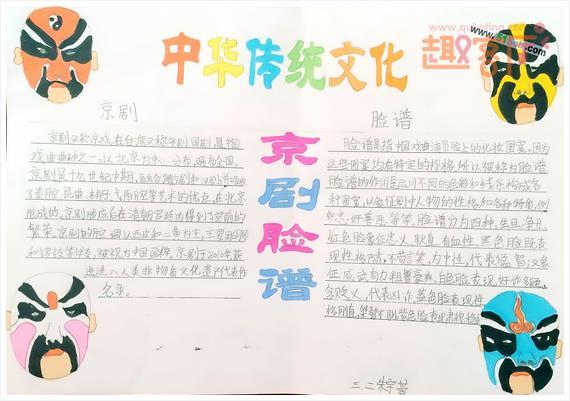 中华传统文化
京剧
京剧又称京戏,在台湾又称平剧,国剧,是中国
戏曲曲种之一,以北京为中心,分布遍布全国。
京剧是十九世纪中期,融合
了秦腔,昆曲,梆子,弋阳腔等艺术的优点,在北京
形成的。京剧形成后在清朝宫廷内得到了空前的
繁荣,京剧的腔调以西皮和二黄为主,主要用胡琴
和锣鼓等伴奏,被视为中国国粹,京剧于2010年获
选进入人类非物质文化遗产代表作
名录。
京剧脸谱
脸谱
脸谱是指中国戏曲演员脸上的化妆图案,因为
这些图案均有特定的规格,所以被称为脸谱
脸谱的作用是运用不同的色彩和线条构成各
种图案,以象征剧中人物的性格和各种特质,例
如忠,奸,善,恶等等。脸谱分为四种,生,旦,净,丑
红色脸象征忠义,耿直,有血性,黑色脸既表
现性格严肃,不苟言笑,为中性,代表猛智,又象
征威武有力,粗鲁豪爽,白色脸表现
含贬义,代表凶诈,蓝色脸表现性
格刚直,桀骜不驯,紫色脸表现肃穆
三二
www.qubating.com
趣